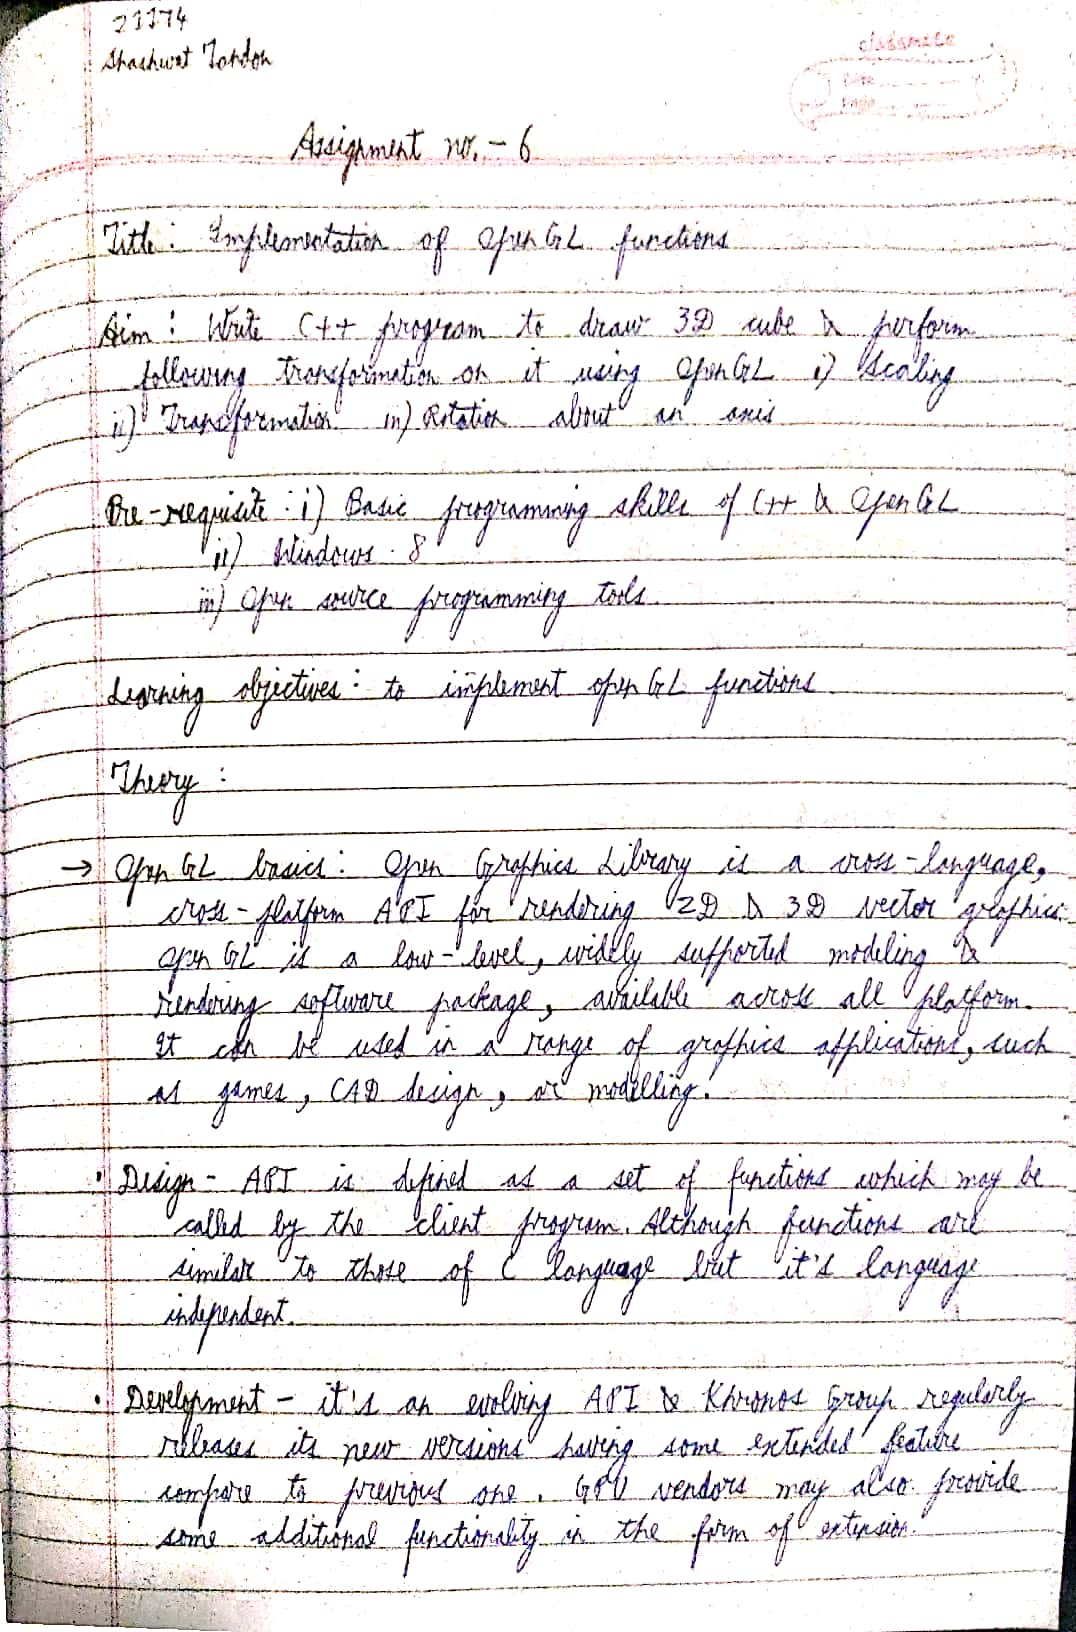 23374
Shashwat Tandon
classmate
Date
Page
Assignment no. - 6
Title : Implementation of OpenGL functions
Aim : Write C++ program to draw 3D cube & perform
following transformation on it using OpenGL i) Scaling
ii) Transformation iii) Rotation about an axis
Pre-requisite : i) Basic programming skills of C++ & OpenGL
ii) Windows 8
iii) Open source programming tools.
Learning objectives : to implement openGL functions
Theory :
→ Open GL basics : Open Graphics Library is a cross-language,
cross-platform API for rendering 2D & 3D vector graphics.
Open GL is a low-level, widely supported modeling &
rendering software package, available across all platform.
It can be used in a range of graphics applications, such
as games, CAD design, or modelling.
• Design - API is defined as a set of functions which may be
called by the client program. Although functions are
similar to those of C language but it's language
independent.
• Development - it's an evolving API & Khronos Group regularly
releases its new versions having some extended feature
compare to previous one. GPU vendors may also provide
some additional functionality in the form of extension.